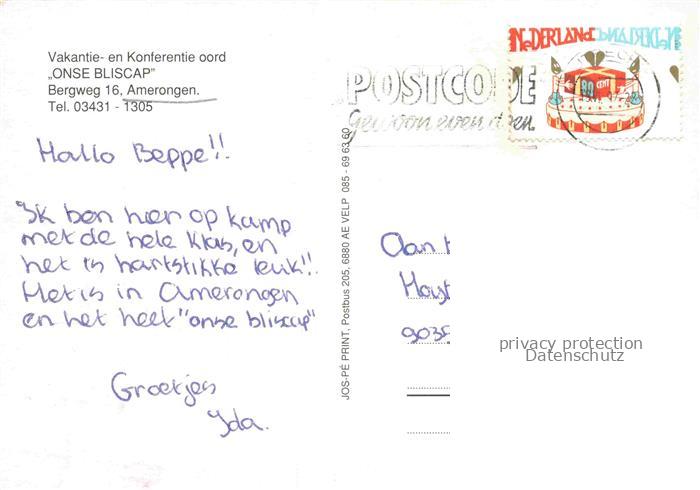 Vakantie- en Konferentie oord
„ONSE BLISCAP"
Bergweg 16, Amerongen.
Tel. 03431 - 1305
Hallo Beppe!!
Ik ben hier op kamp
met de hele klas, en
het is hartstikke leuk!!
Het is in Amerongen
en het heet "onse bliscap"
Groetjes
Ida.
JOS-PÉ PRINT, Postbus 205, 6880 AE VELP 085 - 69 63 60
POSTCODE
Gewoon even doen.
NEDERLAND
NEDERLAND
80 CENT
Aan
9035
privacy protection
Datenschutz